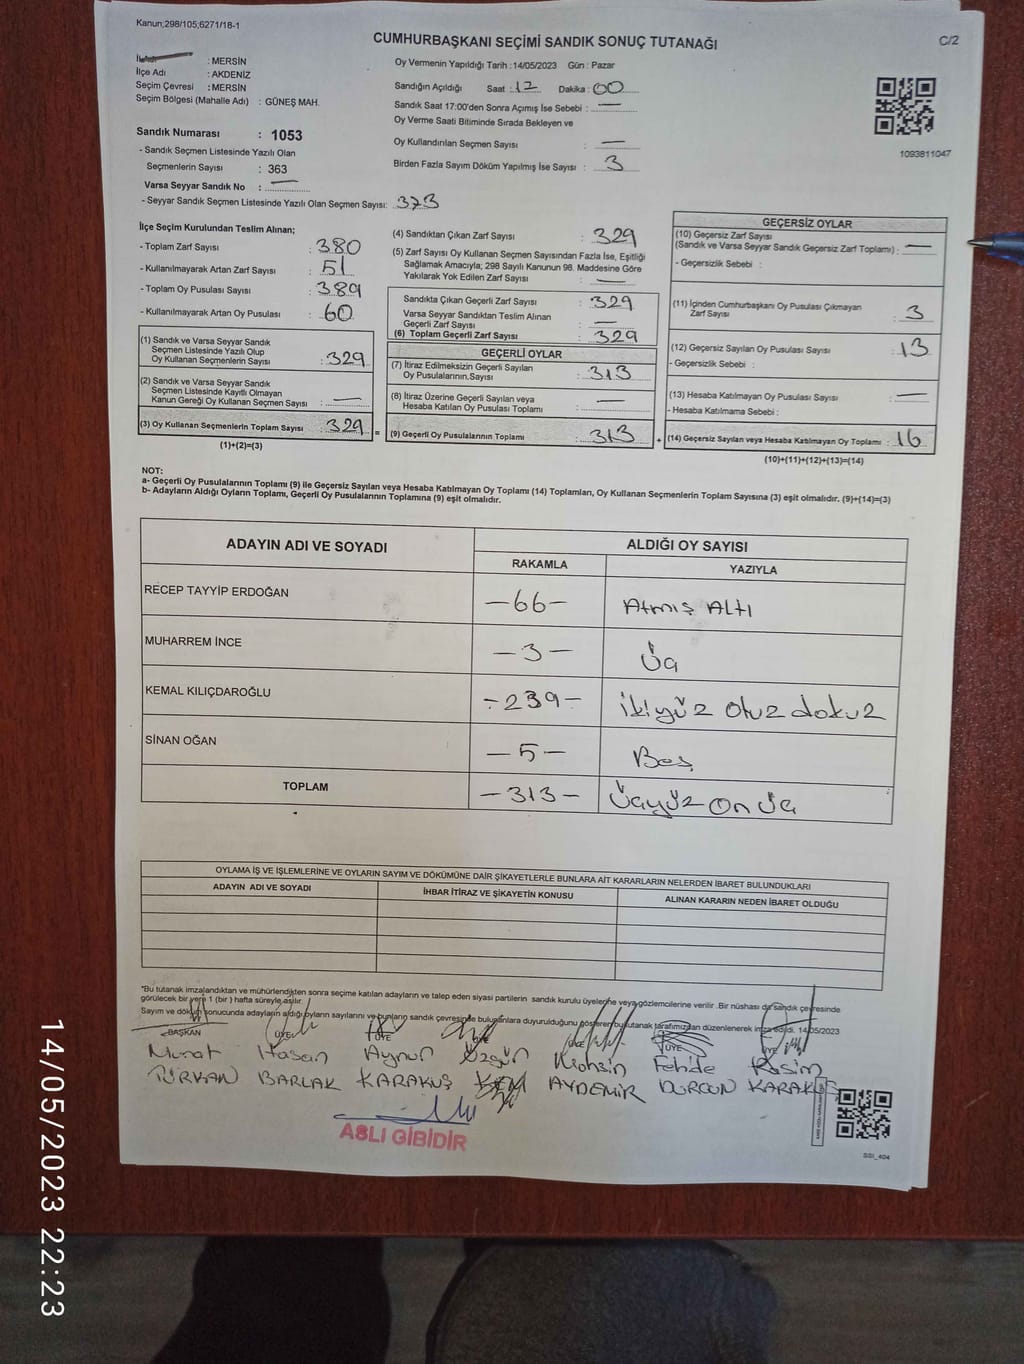 Kanun;298/105;6271/18-1
C/2
CUMHURBAŞKANI SEÇİMİ SANDIK SONUÇ TUTANAĞI
: MERSİN
İlçe Adı : AKDENİZ
Seçim Çevresi : MERSİN
Seçim Bölgesi (Mahalle Adı) : GÜNEŞ MAH.
Sandık Numarası : 1053
- Sandık Seçmen Listesinde Yazılı Olan
Seçmenlerin Sayısı : 363
Varsa Seyyar Sandık No : —
- Seyyar Sandık Seçmen Listesinde Yazılı Olan Seçmen Sayısı: 373
Oy Vermenin Yapıldığı Tarih :14/05/2023 Gün : Pazar
Sandığın Açıldığı Saat : 12 Dakika : 00
Sandık Saat 17:00'den Sonra Açımış İse Sebebi : —
Oy Verme Saati Bitiminde Sırada Bekleyen ve
Oy Kullandırılan Seçmen Sayısı : —
Birden Fazla Sayım Döküm Yapılmış İse Sayısı : 3
1093811047
İlçe Seçim Kurulundan Teslim Alınan;
- Toplam Zarf Sayısı : 380
- Kullanılmayarak Artan Zarf Sayısı : 51
- Toplam Oy Pusulası Sayısı : 389
- Kullanılmayarak Artan Oy Pusulası : 60
(1) Sandık ve Varsa Seyyar Sandık
Seçmen Listesinde Yazılı Olup
Oy Kullanan Seçmenlerin Sayısı : 329
(2) Sandık ve Varsa Seyyar Sandık
Seçmen Listesinde Kayıtlı Olmayan
Kanun Gereği Oy Kullanan Seçmen Sayısı : —
(3) Oy Kullanan Seçmenlerin Toplam Sayısı : 329
(1)+(2)=(3)
(4) Sandıktan Çıkan Zarf Sayısı : 329
(5) Zarf Sayısı Oy Kullanan Seçmen Sayısından Fazla İse, Eşitliği
Sağlamak Amacıyla; 298 Sayılı Kanunun 98. Maddesine Göre
Yakılarak Yok Edilen Zarf Sayısı : —
Sandıkta Çıkan Geçerli Zarf Sayısı : 329
Varsa Seyyar Sandıktan Teslim Alınan
Geçerli Zarf Sayısı : —
(6) Toplam Geçerli Zarf Sayısı : 329
GEÇERLİ OYLAR
(7) İtiraz Edilmeksizin Geçerli Sayılan
Oy Pusulalarının Sayısı : 313
(8) İtiraz Üzerine Geçerli Sayılan veya
Hesaba Katılan Oy Pusulası Toplamı : —
= (9) Geçerli Oy Pusulalarının Toplamı : 313
GEÇERSİZ OYLAR
(10) Geçersiz Zarf Sayısı
(Sandık ve Varsa Seyyar Sandık Geçersiz Zarf Toplamı) : —
- Geçersizlik Sebebi :
(11) İçinden Cumhurbaşkanı Oy Pusulası Çıkmayan
Zarf Sayısı : 3
(12) Geçersiz Sayılan Oy Pusulası Sayısı : 13
- Geçersizlik Sebebi :
(13) Hesaba Katılmayan Oy Pusulası Sayısı : —
- Hesaba Katılmama Sebebi :
+ (14) Geçersiz Sayılan veya Hesaba Katılmayan Oy Toplamı : 16
(10)+(11)+(12)+(13)=(14)
NOT:
a- Geçerli Oy Pusulalarının Toplamı (9) ile Geçersiz Sayılan veya Hesaba Katılmayan Oy Toplamı (14) Toplamları, Oy Kullanan Seçmenlerin Toplam Sayısına (3) eşit olmalıdır. (9)+(14)=(3)
b- Adayların Aldığı Oyların Toplamı, Geçerli Oy Pusulalarının Toplamına (9) eşit olmalıdır.
ADAYIN ADI VE SOYADI ALDIĞI OY SAYISI
RAKAMLA YAZIYLA
RECEP TAYYİP ERDOĞAN -66- Atmış Altı
MUHARREM İNCE -3- Üç
KEMAL KILIÇDAROĞLU -239- ikiyüz otuz dokuz
SİNAN OĞAN -5- Beş
TOPLAM -313- Üçyüz on üç
OYLAMA İŞ VE İŞLEMLERİNE VE OYLARIN SAYIM VE DÖKÜMÜNE DAİR ŞİKAYETLERLE BUNLARA AİT KARARLARIN NELERDEN İBARET BULUNDUKLARI
ADAYIN ADI VE SOYADI İHBAR İTİRAZ VE ŞİKAYETİN KONUSU ALINAN KARARIN NEDEN İBARET OLDUĞU
*Bu tutanak imzalandıktan ve mühürlendikten sonra seçime katılan adayların ve talep eden siyasi partilerin sandık kurulu üyelerine veya gözlemcilerine verilir. Bir nüshası da sandık çevresinde
görülecek bir yere 1 (bir) hafta süreyle asılır.
Sayım ve döküm sonucunda adayların aldığı oyların sayılarını ve bunların sandık çevresinde bulunanlara duyurulduğunu gösteren bu tutanak tarafımızdan düzenlenerek imza edildi. 14/05/2023
BAŞKAN ÜYE ÜYE ÜYE ÜYE
Murat Hasan Aynur Özgür Mohsin Fehide Rasim
TÜRKAN BARLAK KARAKUŞ AYDEMİR DURGUN KARAKUŞ
ASLI GİBİDİR
SSI_404
14/05/2023 22:23